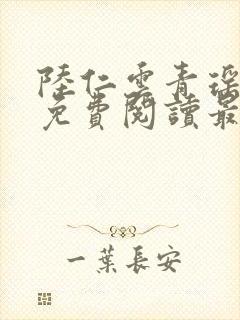 陸仁雲青瑤
免費閱讀最
一葉長安